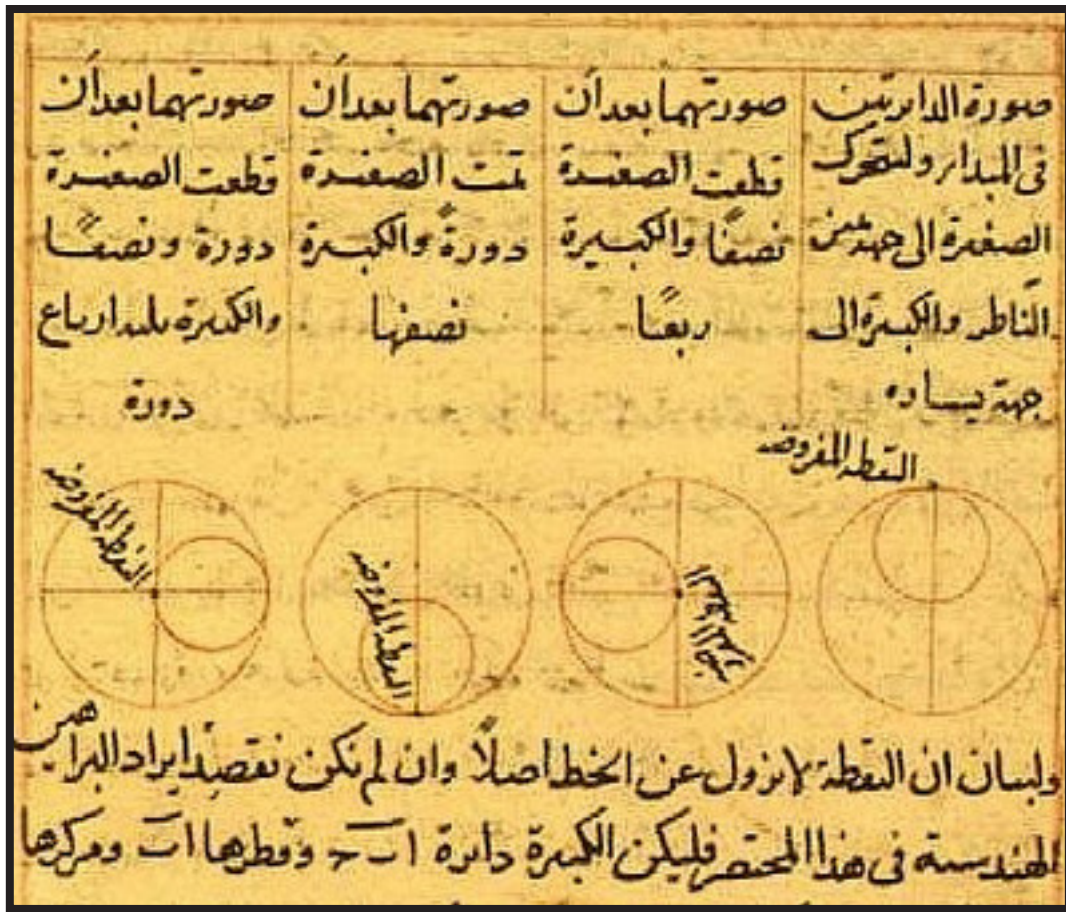 صورة الدايرتين
فى المبدا ولتتحرك
الصغيرة الى جهة يمين
الناظر والكبيرة الى
جهة يساره
صورتهما بعد ان
قطعت الصغيرة
نصفًا والكبيرة
ربعًا
صورتهما بعد ان
تمت الصغيرة
دورةً والكبيرة
نصفها
صورتهما بعد ان
قطعت الصغيرة
دورة ونصفًا
والكبيرة ثلثة ارباع
دورة
النقطة المفروضة
النقطة المفروضة
النقطة المفروضة
النقطة المفروضة
ولبيان ان النقطة لا تزول عن الخط اصلًا وان لم نكن نقصد ايراد البراهين
الهندسية فى هذا المختصر فليكن الكبيرة دائرة ا ب ح وقطرها ا ب ومركزها